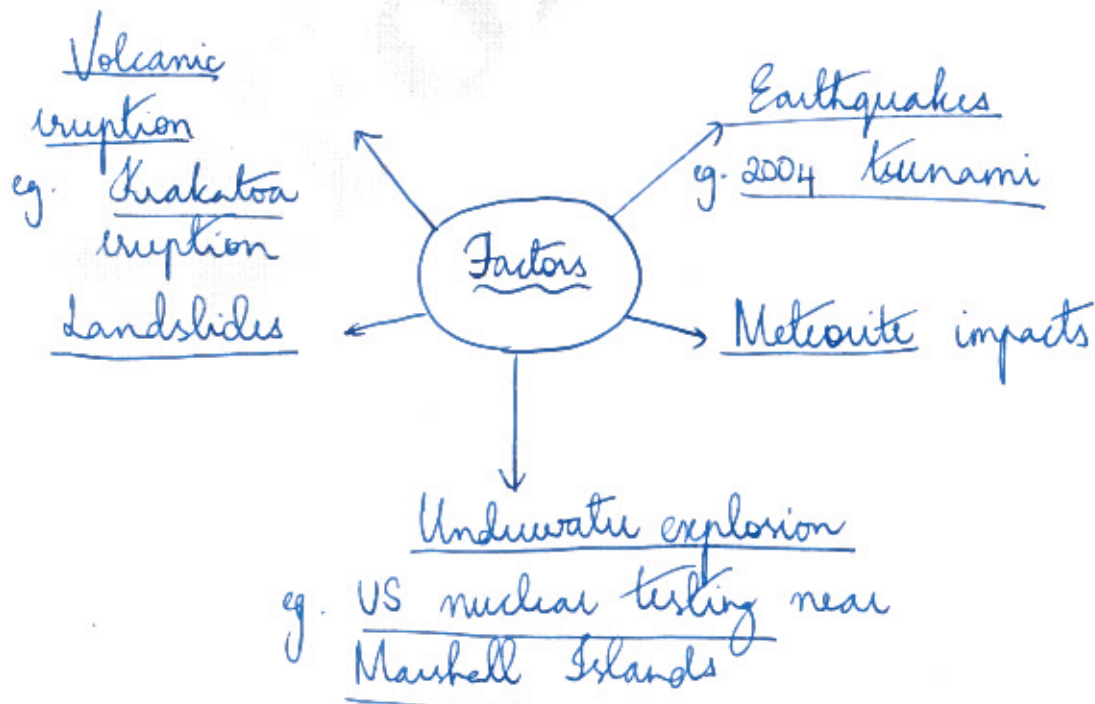 Volcanic
eruption
eg. Krakatoa
eruption
Landslides
Factors
Earthquakes
eg. 2004 tsunami
Meteorite impacts
Underwater explosion
eg. US nuclear testing near
Marshall Islands